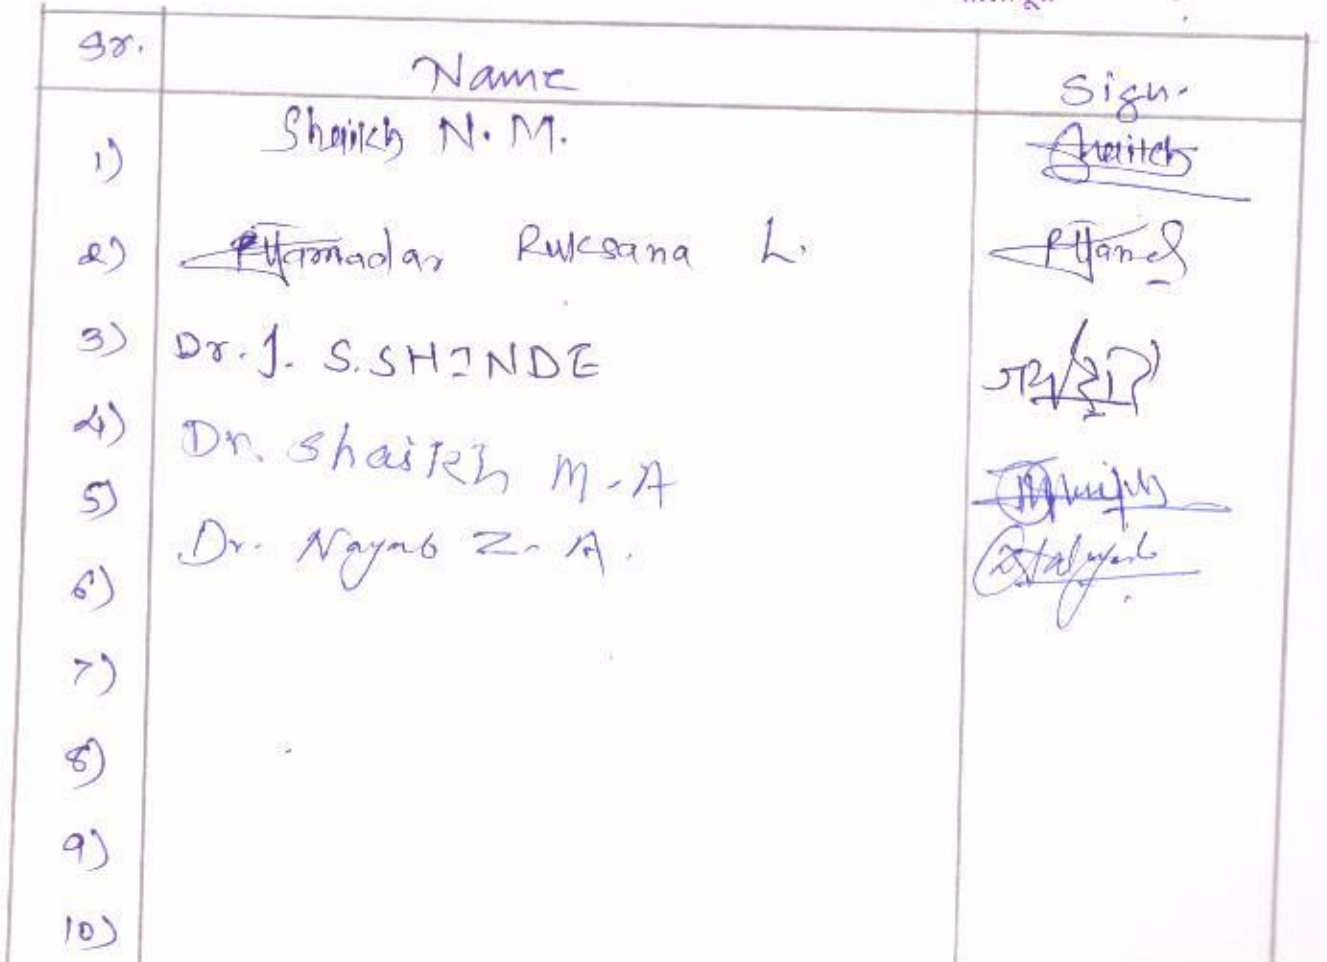 Sr. Name Sign.
1) Shaikh N. M. Shaikh
2) Jamadar Ruksana L.
3) Dr. J. S. SHINDE
4) Dr. Shaikh M. A
5) Dr. Nayab Z. A.
6)
7)
8)
9)
10)